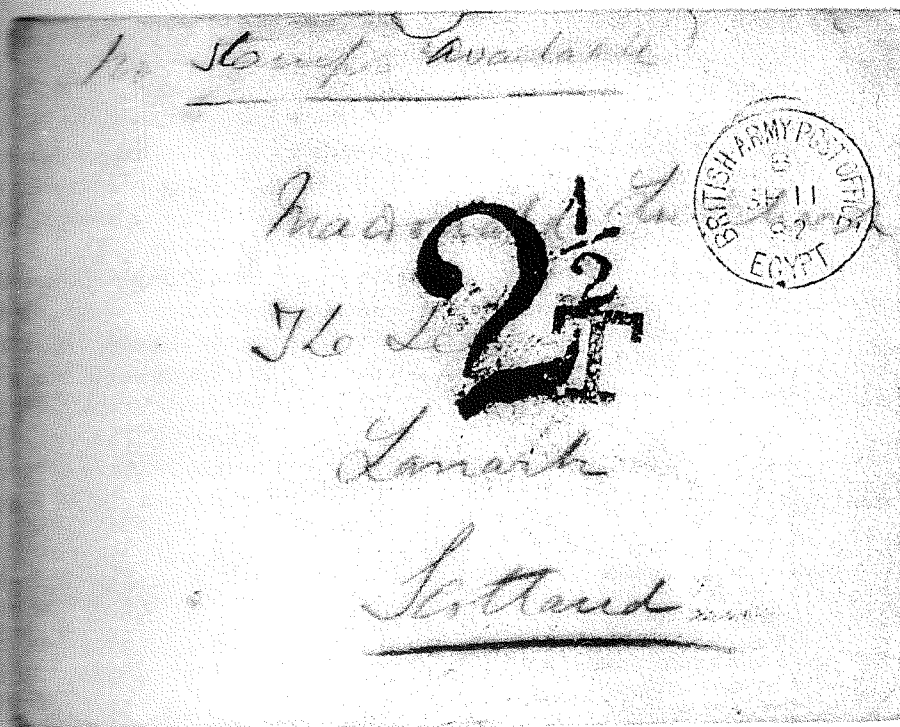 No Stamps available
BRITISH ARMY POST OFFICE
B
SE 11
82
EGYPT
Macdonald
2 1/2
T
The
Lanark
Scotland